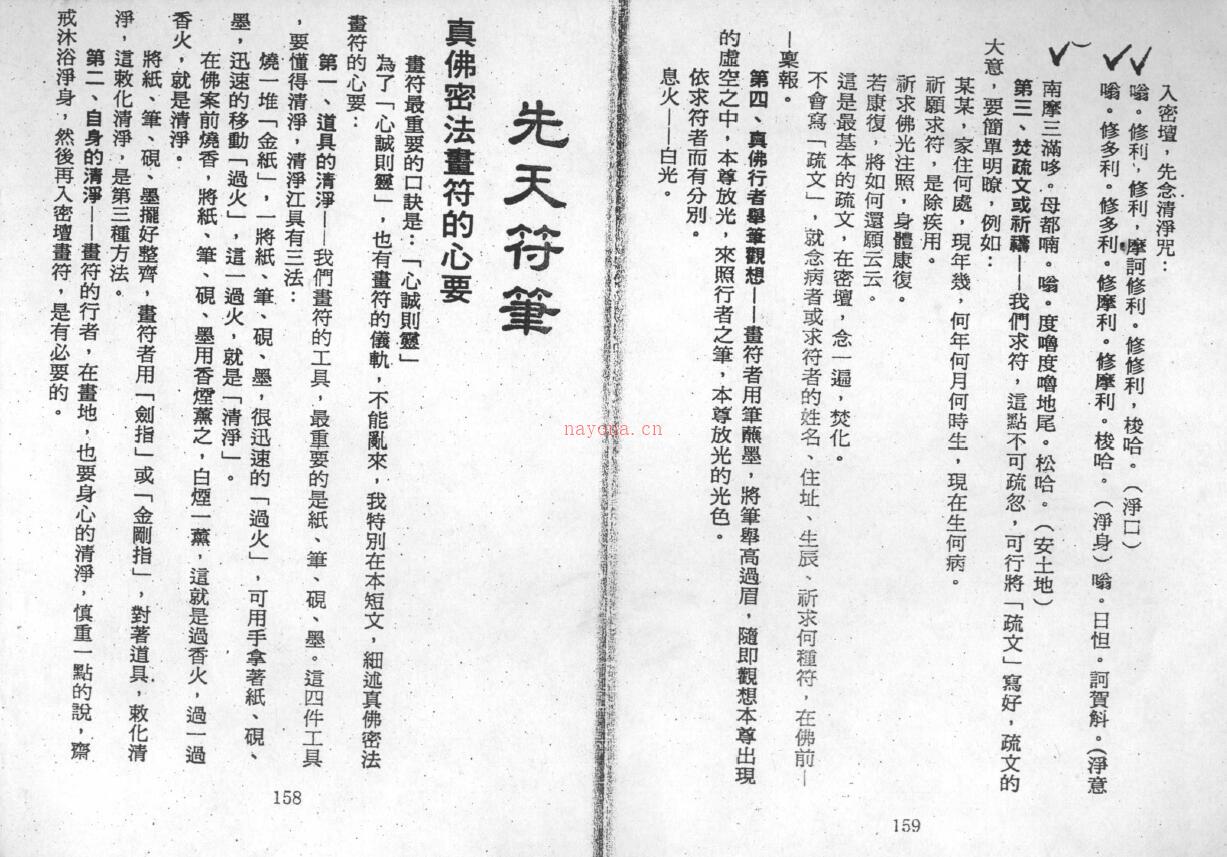 先天符筆
真佛密法畫符的心要
畫符最重要的口訣是:「心誠則靈」
為了「心誠則靈」,也有畫符的儀軌,不能亂來,我特別在本短文,細述真佛密法
畫符的心要:
第一、道具的清淨——我們畫符的工具,最重要的是紙、筆、硯、墨。這四件工具
,要懂得清淨,清淨江具有三法:
燒一堆「金紙」,一將紙、筆、硯、墨,很迅速的「過火」,可用手拿著紙、硯、
墨,迅速的移動「過火」,這一過火,就是「清淨」。
在佛案前燒香,將紙、筆、硯、墨用香煙薰之,白煙一薰,這就是過香火,過一過
香火,就是清淨。
將紙、筆、硯、墨擺好整齊,畫符者用「劍指」或「金剛指」,對著道具,敕化清
淨,這敕化清淨,是第三種方法。
第二、自身的清淨——畫符的行者,在畫地,也要身心的清淨,慎重一點的說,齋
戒沐浴淨身,然後再入密壇畫符,是有必要的。
158
入密壇,先念清淨咒:
嗡。修利,修利,摩訶修利。修修利,梭哈。(淨口)
嗡。修多利。修多利。修摩利。修摩利。梭哈。(淨身)嗡。日怛。訶賀斛。(淨意
南摩三滿哆。母都喃。嗡。度嚕度嚕地尾。松哈。(安土地)
第三、焚疏文或祈禱——我們求符,這點不可疏忽,可行將「疏文」寫好,疏文的
大意,要簡單明瞭,例如:
某某,家住何處,現年幾,何年何月何時生,現在生何病。
祈願求符,是除疾用。
祈求佛光注照,身體康復。
若康復,將如何還願云云。
這是最基本的疏文,在密壇,念一遍,焚化。
不會寫「疏文」,就念病者或求符者的姓名、住址、生辰、祈求何種符,在佛前—
—稟報。
第四、真佛行者舉筆觀想——畫符者用筆蘸墨,將筆舉高過眉,隨即觀想本尊出現
的虛空之中,本尊放光,來照行者之筆,本尊放光的光色。
依求符者而有分別。
息火——白光。
159
nayona.cn